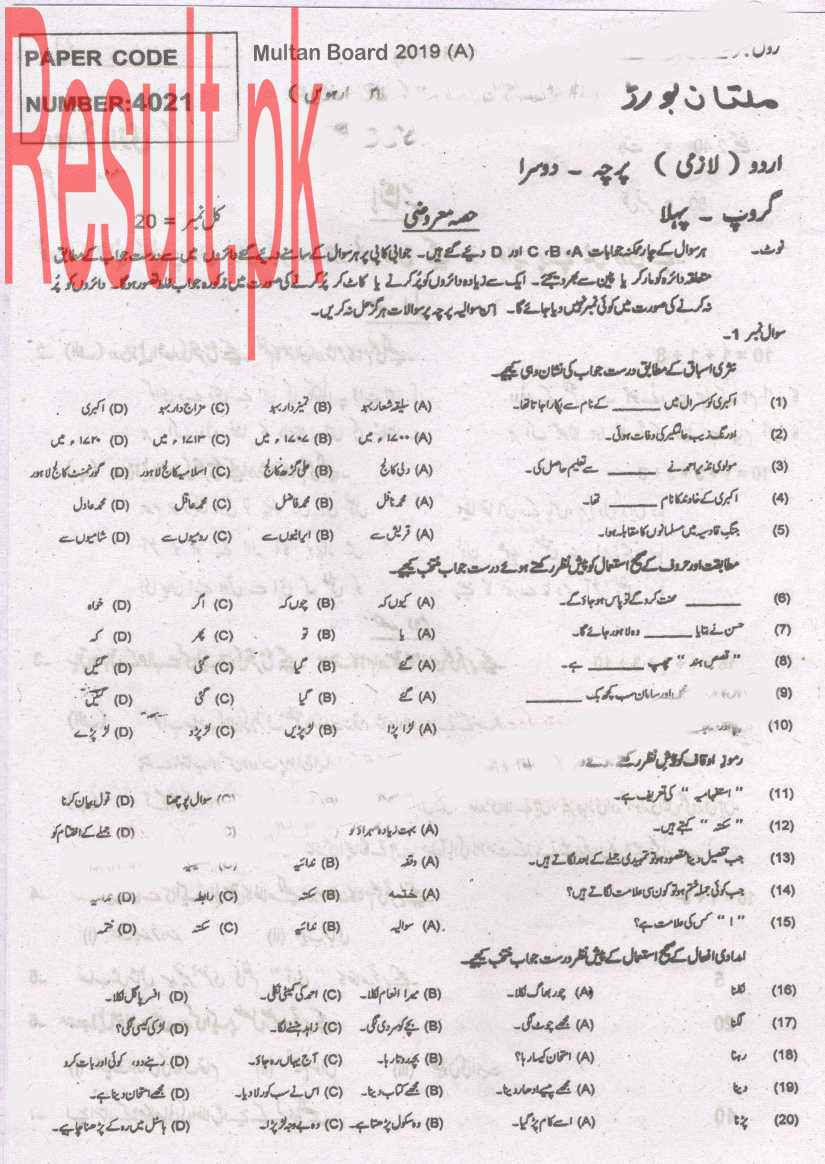 PAPER CODE
NUMBER:4021
Result.pk
Multan Board 2019 (A)
ملتان بورڈ
اردو (لازمی) پرچہ ۔ دوسرا
گروپ ۔ پہلا
حصہ معروضی
کل نمبر = 20
نوٹ۔ ہر سوال کے چار ممکنہ جوابات A، B، C اور D دیئے گئے ہیں۔ جوابی کاپی پر ہر سوال کے سامنے دیئے گئے دائروں میں سے درست جواب کے مطابق
متعلقہ دائرہ کو مارکر یا پین سے بھر دیجئے۔ ایک سے زیادہ دائروں کو پُر کرنے یا کاٹ کر پُر کرنے کی صورت میں مذکورہ جواب غلط تصور ہوگا۔ دائروں کو پُر
نہ کرنے کی صورت میں کوئی نمبر نہیں دیا جائے گا۔ اس سوالیہ پرچہ پر سوالات ہرگز حل نہ کریں۔
سوال نمبر 1۔
نثری اسباق کے مطابق درست جواب کی نشان دہی کیجیے۔
(1) اکبری کو سسرال میں ______ کے نام سے پکارا جاتا تھا۔ (A) سلیقہ شعار بہو (B) تمیز دار بہو (C) مزاج دار بہو (D) اکبری
(2) اورنگ زیب عالمگیر کی وفات ہوئی۔ (A) ۱۷۰۰ء میں (B) ۱۷۰۷ء میں (C) ۱۷۱۳ء میں (D) ۱۷۲۰ء میں
(3) مولوی نذیر احمد نے ______ سے تعلیم حاصل کی۔ (A) دلی کالج (B) علی گڑھ کالج (C) اسلامیہ کالج لاہور (D) گورنمنٹ کالج لاہور
(4) اکبری کے خاوند کا نام ______ تھا۔ (A) محمد فاضل (B) محمد فاضل (C) محمد عاقل (D) محمد عادل
(5) جنگِ قادسیہ میں مسلمانوں کا مقابلہ ہوا۔ (A) قریش سے (B) ایرانیوں سے (C) رومیوں سے (D) شامیوں سے
مطابقت اور حروف کے صحیح استعمال کو پیشِ نظر رکھتے ہوئے درست جواب منتخب کیجیے۔
(6) ______ محنت کرو گے تو پاس ہو جاؤ گے۔ (A) کیوں کہ (B) چوں کہ (C) اگر (D) خواہ
(7) حسن نے بتایا ______ وہ لاہور جائے گا۔ (A) یا (B) تو (C) پھر (D) کہ
(8) "قصصِ ہند" چھپ ______ ہے۔ (A) گئے (B) گیا (C) گئی (D) گئیں
(9) اور سامان سب کچھ بک ______ (A) گئے (B) گیا (C) گئی (D) گئیں
(10) (A) لڑا پڑا (B) لڑ پڑیں (C) لڑ پڑو (D) لڑ پڑے
رموزِ اوقاف کو پیشِ نظر رکھتے
(11) "استفہامیہ" کی تعریف ہے۔ (C) سوال پوچھنا (D) قول بیان کرنا
(12) "سکتہ" کہتے ہیں۔ (A) بہت زیادہ ٹھہراؤ کو (D) جملے کے اختتام کو
(13) جب تفصیل دینا مقصود ہو تو تمہیدی جملے کے بعد لگاتے ہیں۔ (A) وقفہ (B) ندائیہ
(14) جب کوئی جملہ ختم ہو تو کون سی علامت لگاتے ہیں؟ (A) ختمہ (B) سکتہ (C) رابطہ (D) ندائیہ
(15) "!" کس کی علامت ہے؟ (A) سوالیہ (B) ندائیہ (C) سکتہ (D) ختمہ
امدادی افعال کے صحیح استعمال کے پیشِ نظر درست جواب منتخب کیجیے۔
(16) نکلنا (A) چور بھاگ نکلا۔ (B) میرا انعام نکلا۔ (C) احمد کی کمیٹی نکلی۔ (D) افسر پاگل نکلا۔
(17) لگنا (A) مجھے چوٹ لگی۔ (B) بچے کو سردی لگی۔ (C) زاہد ہنسنے لگا۔ (D) لڑکی کیسی لگی؟
(18) رہنا (A) امتحان کیسا رہا؟ (B) بچہ روتا رہا۔ (C) آج یہاں رہ جاؤ۔ (D) رہنے دو، کوئی اور بات کرو
(19) دینا (A) مجھے پیسے ادھار دینا۔ (B) مجھے کتاب دینا۔ (C) اس نے سب کو رلا دیا۔ (D) مجھے امتحان دینا ہے۔
(20) پڑنا (A) اسے کام پڑ گیا۔ (B) وہ سکول پڑھتا ہے۔ (C) وہ بے وجہ لڑ پڑا۔ (D) ہاسٹل میں رہ کے پڑھنا چاہیے۔